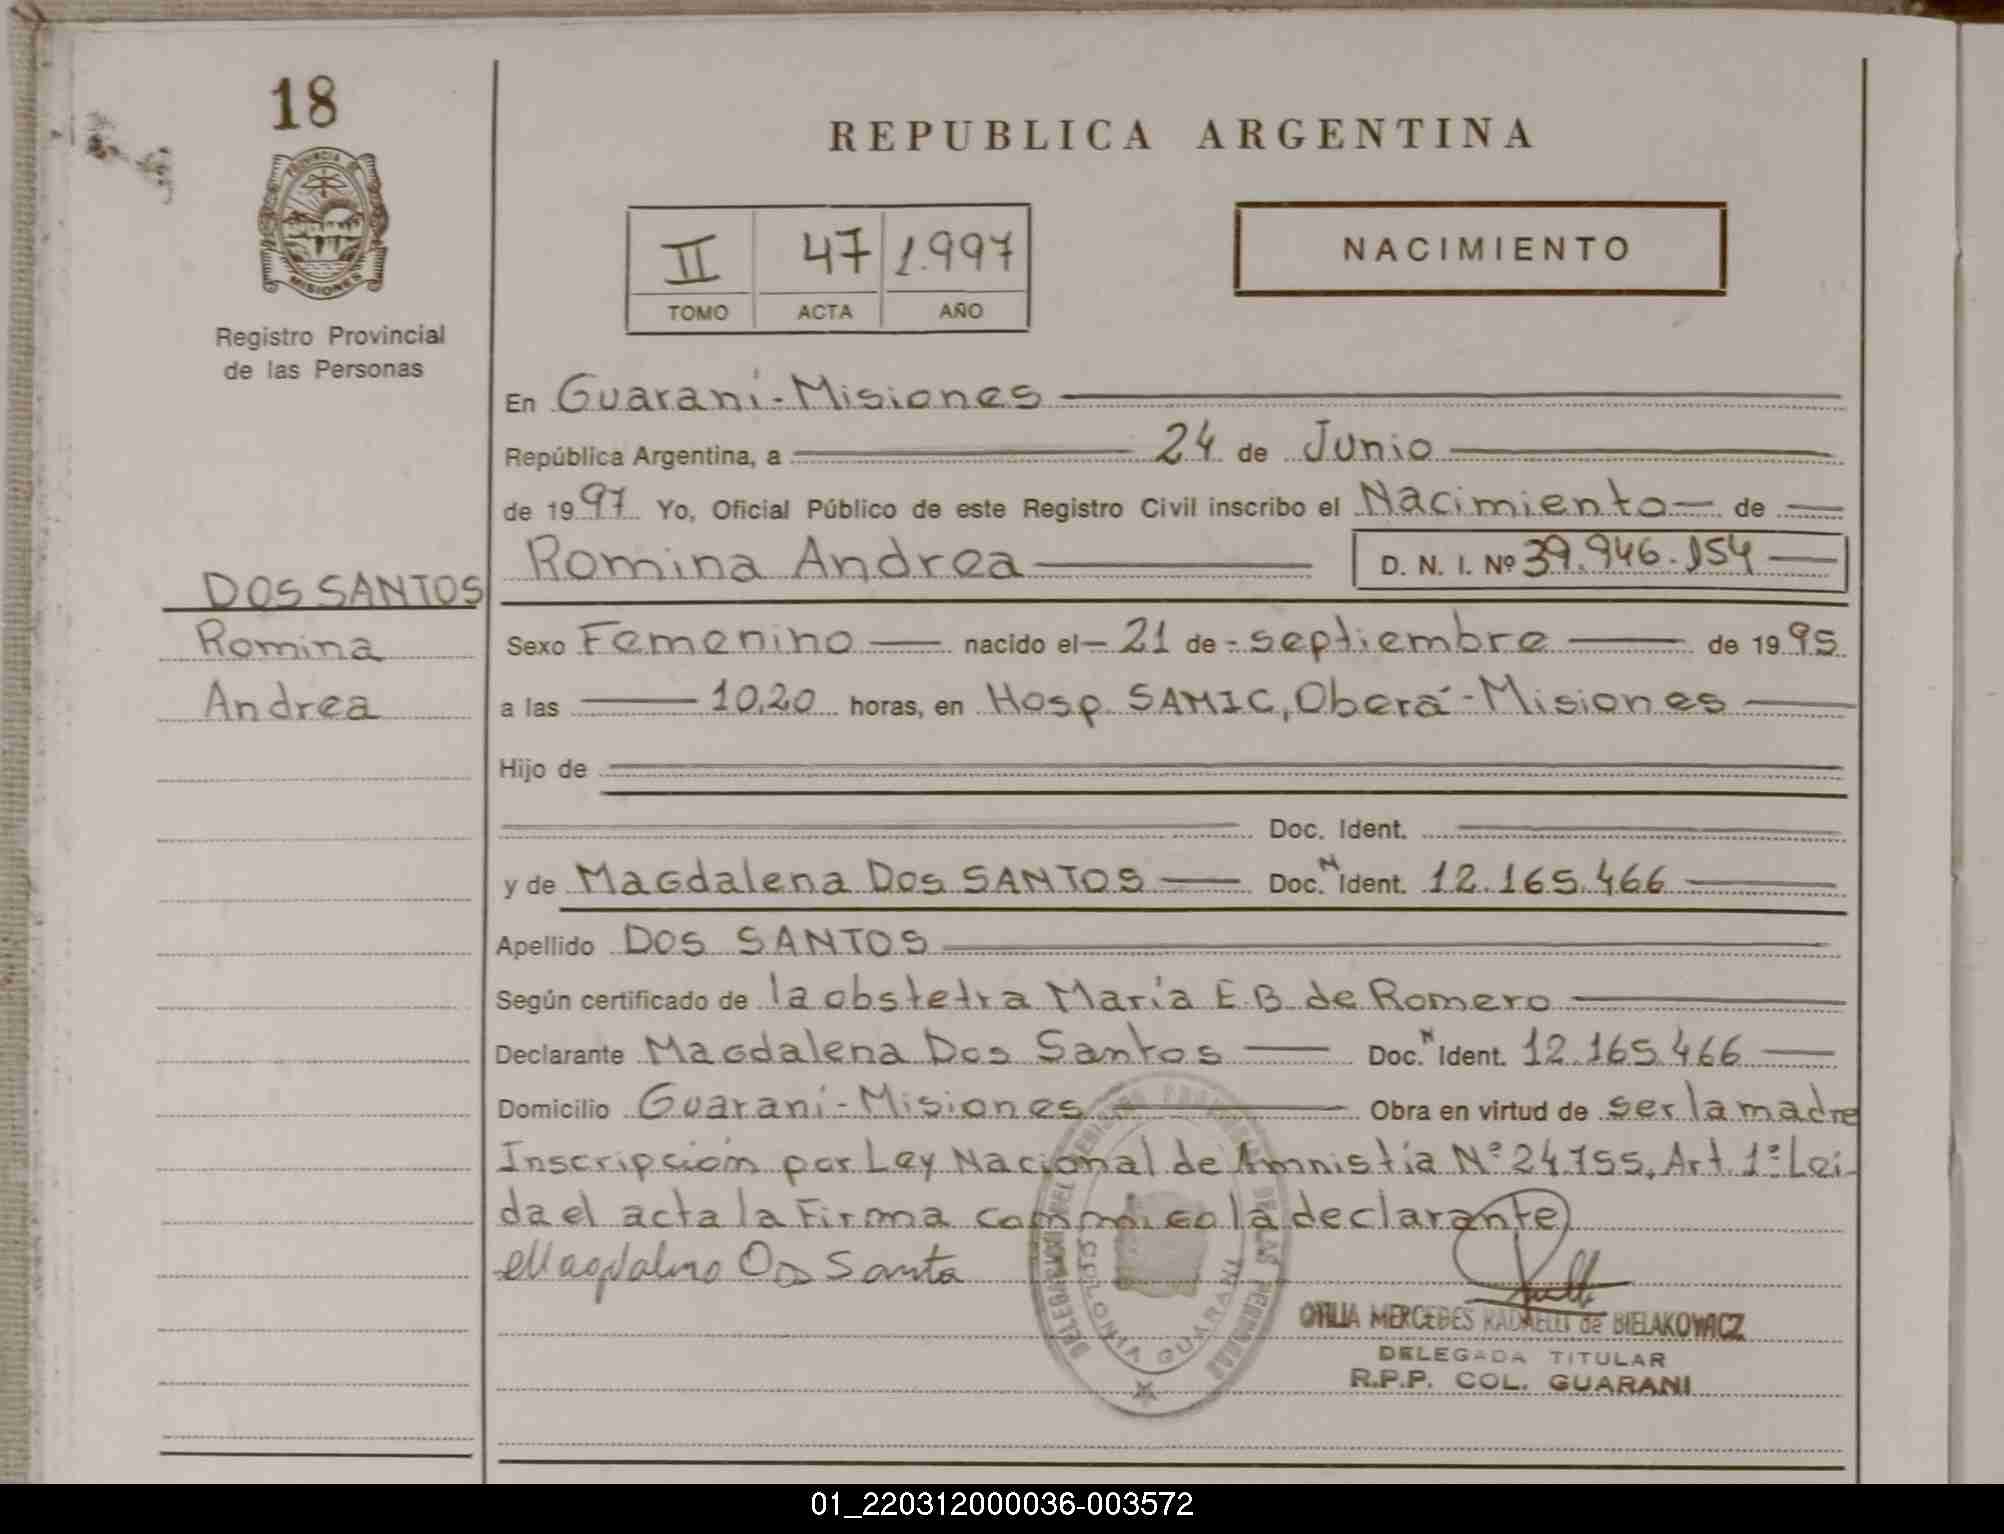 18
PROVINCIA DE
MISIONES
Registro Provincial
de las Personas
DOS SANTOS
Romina
Andrea
REPUBLICA ARGENTINA
II 47 1.997
TOMO ACTA AÑO
NACIMIENTO
En Guaraní-Misiones
República Argentina, a 24 de Junio
de 1997 Yo, Oficial Público de este Registro Civil inscribo el Nacimiento de
Romina Andrea D. N. I. Nº 39.946.154
Sexo Femenino nacido el 21 de septiembre de 1995
a las 10,20 horas, en Hosp. SAMIC, Oberá-Misiones
Hijo de
Doc. Ident.
y de Magdalena Dos SANTOS Doc. N Ident. 12.165.466
Apellido DOS SANTOS
Según certificado de la obstetra María E.B. de Romero
Declarante Magdalena Dos Santos Doc. N Ident. 12.165.466
Domicilio Guaraní-Misiones Obra en virtud de ser la madre
Inscripción por Ley Nacional de Amnistía Nº 24.755, Art. 1º Lei-
da el acta la Firma conmigo la declarante
Magdalena Dos Santo
COLONIA GUARANI
MERCEDES RADAELLI de BIELAKOWICZ
DELEGADA TITULAR
R.P.P. COL. GUARANI
01_220312000036-003572